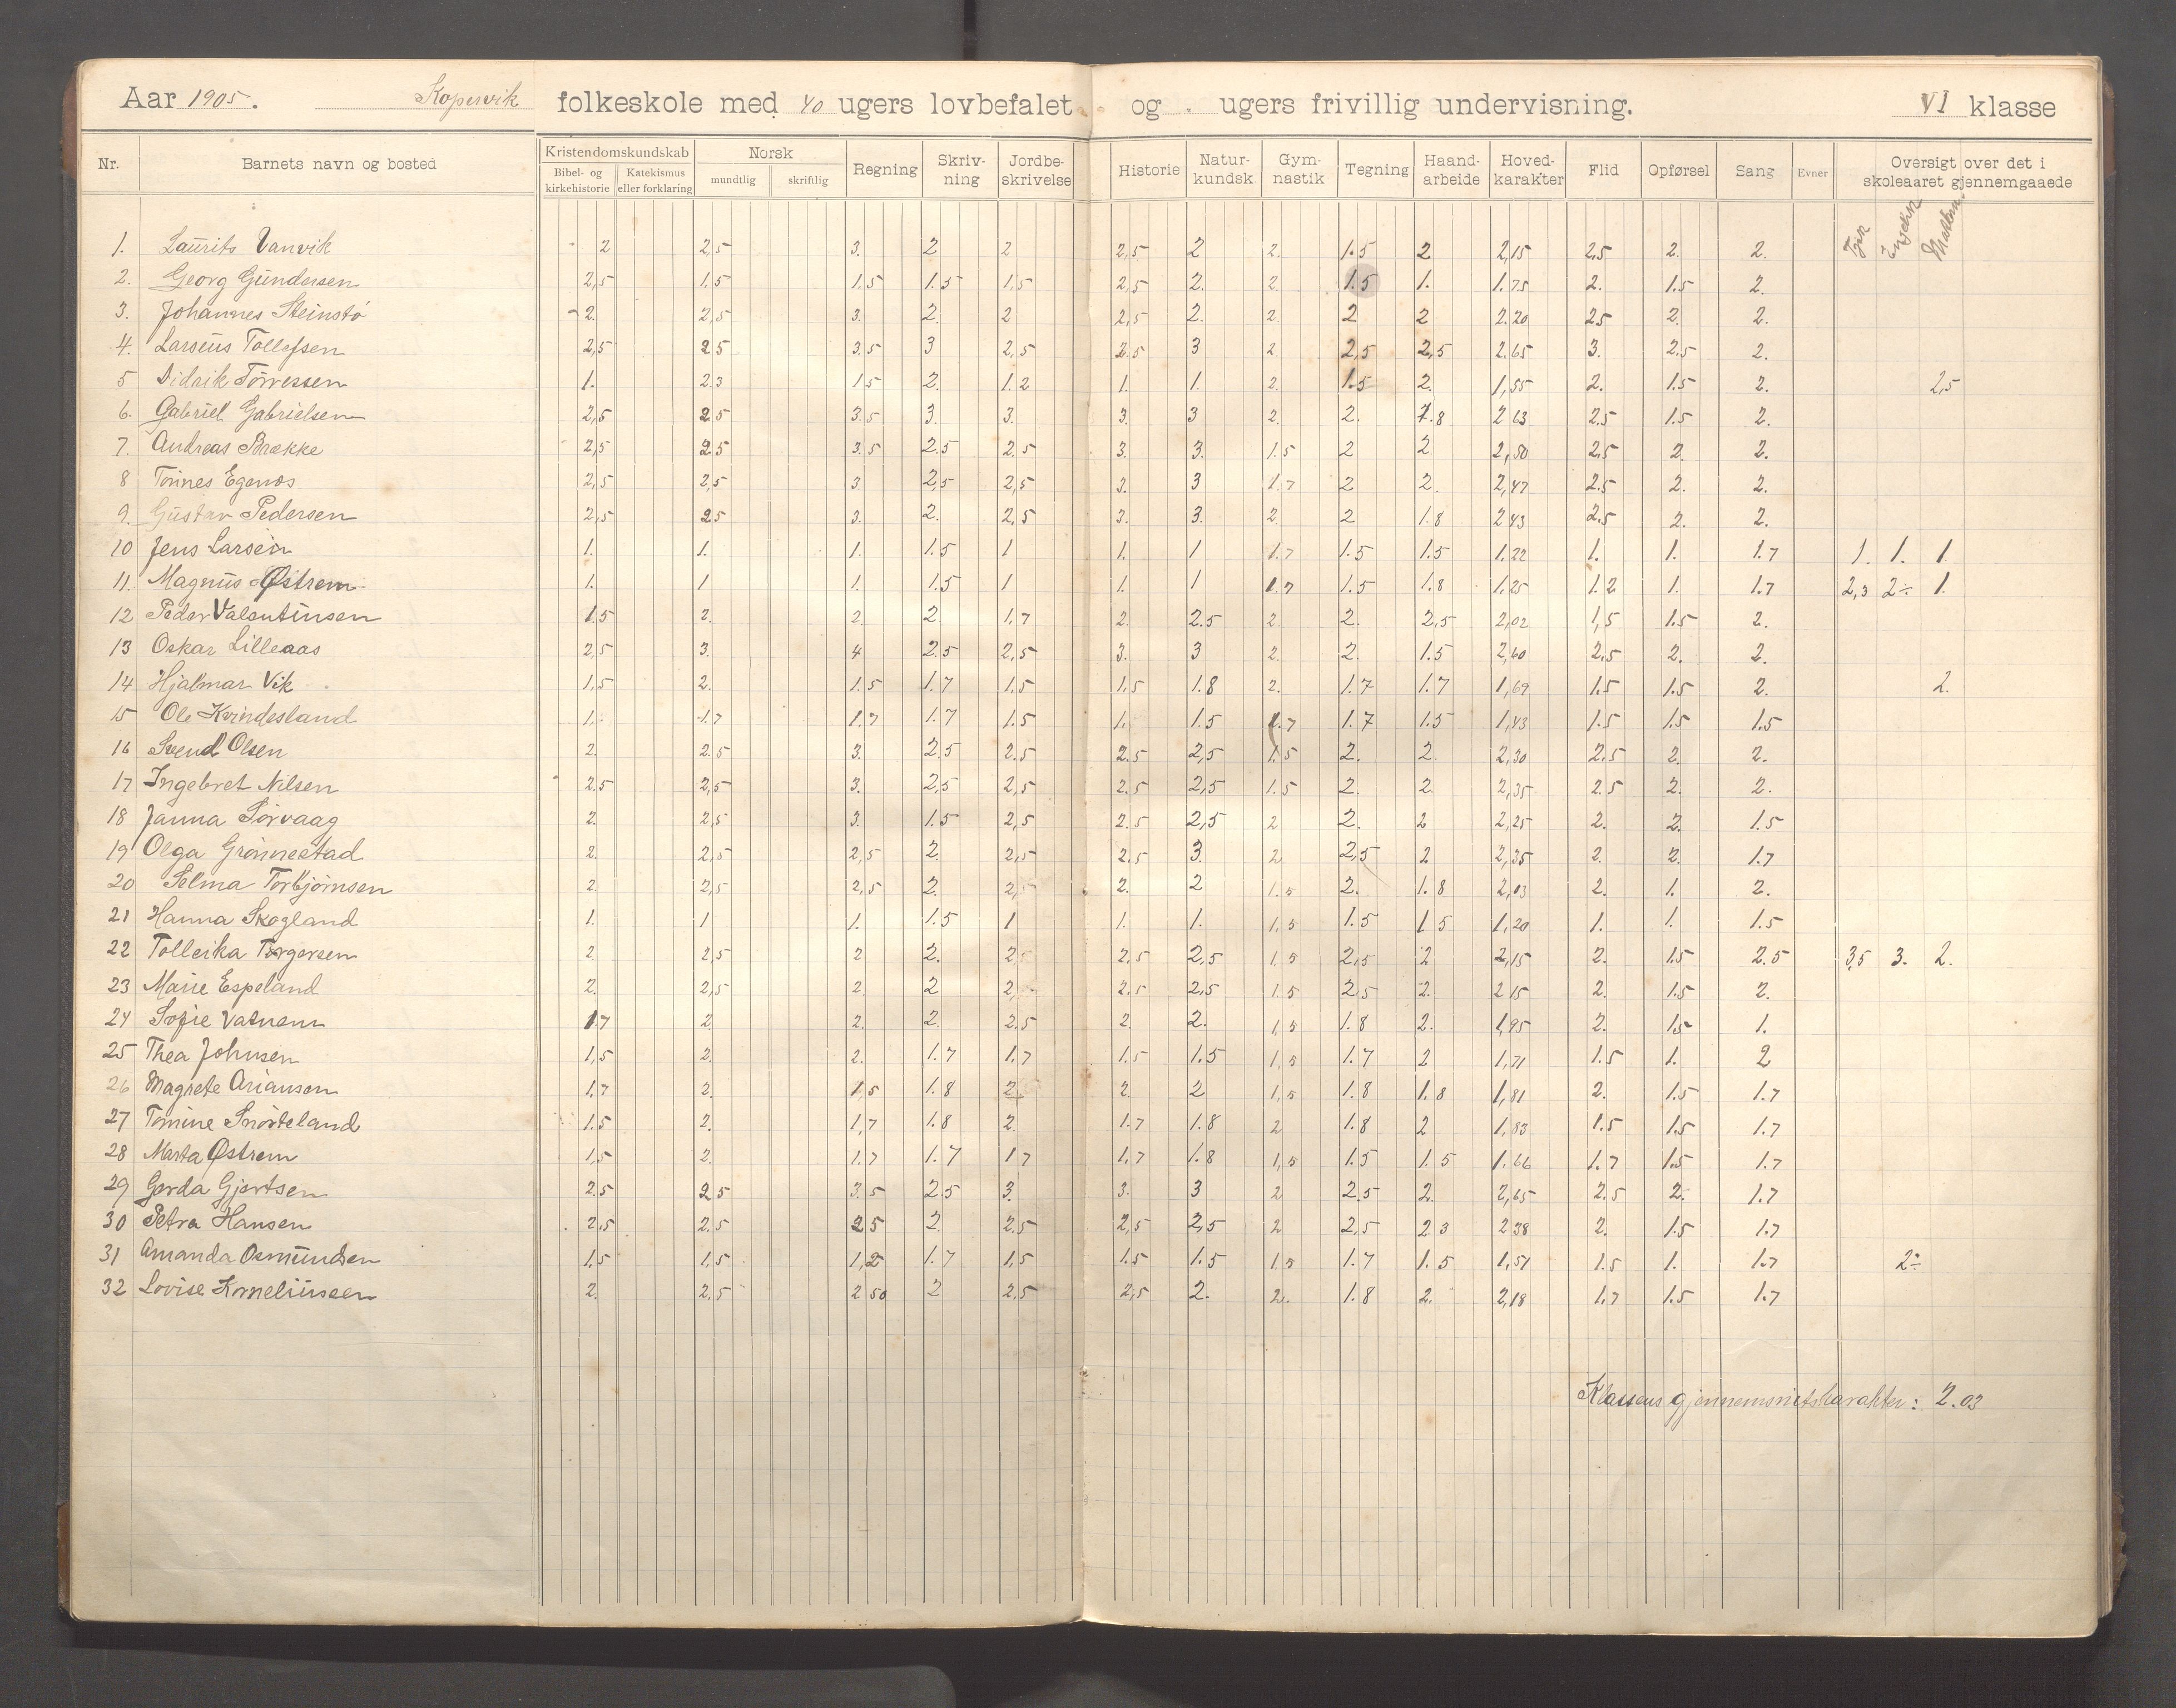 Aar 1905. Kopervik folkeskole med 40 ugers lovbefalet og . ugers frivillig undervisning. VI klasse
Nr. Barnets navn og bosted Kristendomskundskab Bibel- og kirkehistorie Katekismus eller forklaring Norsk mundtlig skriftlig Regning Skriv-ning Jordbe-skrivelse Historie Natur-kundsk. Gym-nastik Tegning Haand-arbeide Hoved-karakter Flid Opførsel Sang Evner Oversigt over det i skoleaaret gjennemgaaede
Tysk Engelsk Mathem.
1. Laurits Vanvik 2 2,5 3. 2 2 2,5 2 2. 1.5 2 2,15 2,5 2. 2.
2. Georg Gundersen 2,5 1,5 1,5 1.5 1,5 2,5 2. 2. 1.5 1. 1.75 2. 1.5 2.
3. Johannes Steinstö 2. 2,5 3. 2. 2 2,5 2. 2 2 2 2.20 25 2. 2.
4. Larseus Tollefsen 2,5 25 3.5 3 2,5 2.5 3 2 2,5 2,5 2.65 3. 2.5 2.
5 Didrik Törressen 1. 2.3 15 2. 1.2 1. 1. 2. 1.5 2. 1,55 2. 1.5 2. 2,5
6. Gabriel Gabrielsen 2,5 25 3.5 3. 3. 3. 3 2. 2. 1.8 2 63 2.5 1.5 2.
7. Andreas Brekke 2,5 25 3.5 2.5 2.5 3. 3. 1.5 2 2. 2,50 2.5 2. 2.
8 Tönnes Egenæs 2,5 2,5 3. 2,5 2,5 3. 3 1.7 2 2. 2,47 2.5 2. 2.
9. Gustav Pedersen 2,5 25 3. 2. 2,5 3. 3. 2. 2 1.8 2 43 2.5 2. 2.
10 Jens Larsen 1. 1. 1. 1.5 1 1. 1 1.7 1.5 1.5 1.22 1. 1. 1.7 1. 1. 1.
11. Magnus Østrem 1. 1 1. 1.5 1 1. 1 1.7 1.5 1.8 1.25 1.2 1. 1.7 2,3 2÷ 1.
12 Peder Valentinsen 1.5 2. 2. 2. 1.7 2. 2.5 2. 2. 2,5 2,02 1,5 1.5 2.
13 Oskar Lilleaas 2,5 3. 4 2.5 2,5 3. 3 2. 2. 1.5 2,60 2.5 2. 2.
14 Hjalmar Vik 1,5 2. 1.5 1.7 1,5 1,5 1.8 2. 1.7 1.7 1,69 1.5 1.5 2. 2.
15 Ole Kvindesland 1. 1.7 1.7 1.7 1.5 1. 1.5 1.7 1.7 1.5 1,43 1.5 1.5 1.5
16 Svend Olsen 2. 2.5 3. 2.5 2.5 2.5 2,5 1.5 2. 2. 2,30 2.5 2. 2.
17 Ingebret Nilsen 2.5 2,5 3. 2,5 2,5 2.5 2,5 1.5 2. 2. 2,35 2.5 2. 2.
18 Janna Sörvaag 2. 2,5 3. 1.5 2,5 2.5 2,5 2 2. 2 2,25 2. 2. 1.5
19 Olga Grönnestad 2. 2,5 2,5 2. 2,5 2.5 3. 2 2,5 2 2,35 2. 2. 1.7
20 Selma Torbjörnsen 2 2,5 2,5 2. 2,5 2. 2 1.5 2. 1.8 2,03 2. 1. 2.
21 Hanna Skogland 1. 1 1. 1.5 1 1. 1. 1,5 1.5 1 5 1,20 1. 1. 1.5
22 Tolleika Torgersen 2 2,5 2 2. 2,5 2.5 2,5 1,5 2,5 2 2,15 2. 1.5 2.5 3,5 3. 2.
23 Marie Espeland 2. 2,5 2. 2 2, 2.5 2,5 1.5 2,5 2. 2 15 2. 1.5 2.
24 Sofie Vatnem 1.7 2. 2. 2. 2.5 2. 2. 1,5 1.8 2. 1,95 2. 1.5 1.
25 Thea Johnsen 1,5 2. 2. 1.7 1.7 1.5 1.5 1,5 1.7 2 1,71 1.5 1. 2
26 Magrete Ariansen 1.7 2. 1,5 1.8 2. 2. 2 1,5 1.8 1.8 1,81 2. 1.5 1.7
27 Tomine Snörteland 1.5 2. 1,7 1.8 2. 1.7 1.8 2 1.8 2 1,83 1.5 1.5 1.7
28 Marta Østrem 1,5 2. 1.7 1.7 1 7 1.7 1.8 1,5 1.5 1.5 1.66 1.7 1.5 1.7
29 Gerda Gjertsen 2.5 25 3.5 2.5 3. 3. 3 2 2.5 2. 2,65 2.5 2. 1.7
30 Petra Hansen 2.5 2.5 25 2. 2.5 2,5 2,5 2 2,5 2 3 2 38 2. 1.5 1.7
31 Amanda Osmundsen 1,5 1,5 1,2 1.7 1,5 1.5 1.5 1,5 1.7 1.5 1,51 1.5 1. 1.7 2÷
32 Lovise Korneliussen 2. 2.5 2 50 2 2.5 2,5 2. 2. 1.8 2. 2,18 1.7 1.5 1.7
Klassens gjennemsnitskarakter: 2.03